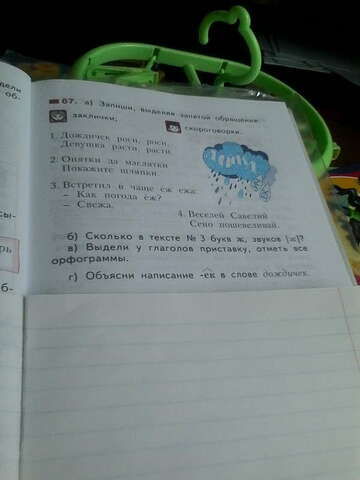 дели
об.
87. а) Запиши, выделяя запятой обращение:
заклички;
скороговорки.
1. Дождичек роси, роси,
Девушка расти, расти.
2. Опятки да маслятки
Покажите шляпки.
3. Встретил в чаще ёж ежа:
– Как погода ёж?
– Свежа.
4. Веселей Савелий
Сено пошевеливай.
б) Сколько в тексте № 3 букв ж, звуков [ж]?
в) Выдели у глаголов приставку, отметь все
орфограммы.
г) Объясни написание -ек в слове дождичек.
сы-
рь
б-